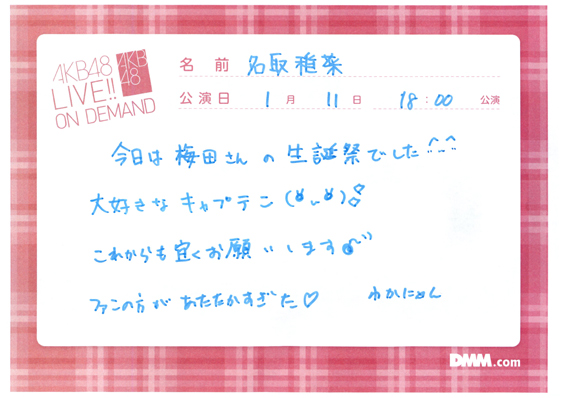 AKB48
LIVE!!
ON DEMAND
AKB
48
名前 名取稚菜
公演日 1月 11日 18:00 公演
今日は梅田さんの生誕祭でした^^
大好きなキャプテン
これからも宜くお願いします
ファンの方があたたかすぎた♡ わかにゃん
DMM.com